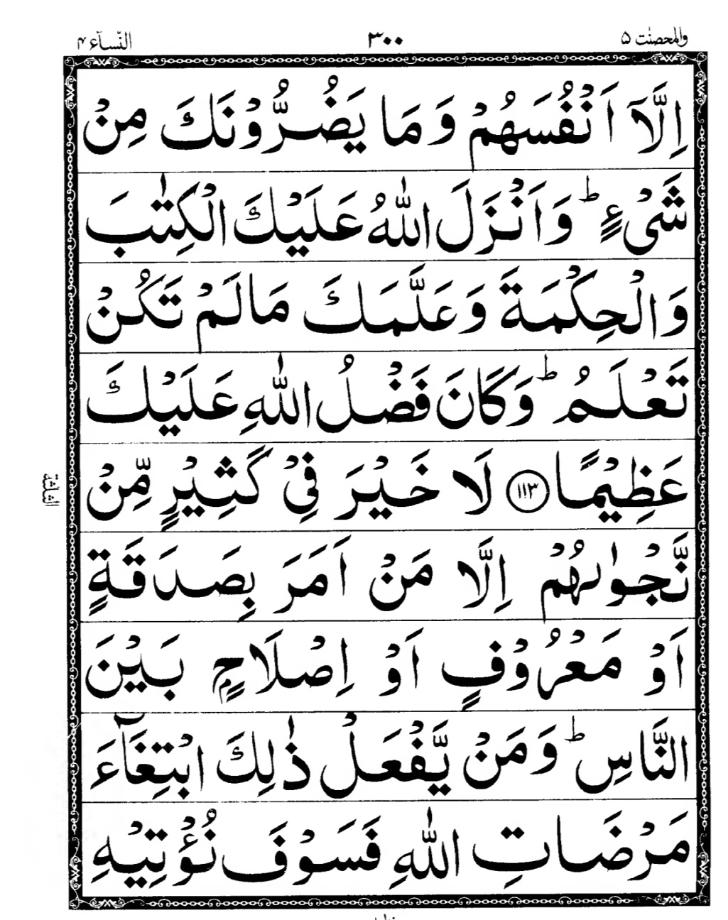 والمحصنٰت ۵ ۳۰۰ النّسآء ۴
اِلَّاۤ اَنْفُسَهُمْ وَمَا يَضُرُّوْنَكَ مِنْ
شَیْءٍ ؕ وَاَنْزَلَ اللّٰهُ عَلَيْكَ الْكِتٰبَ
وَالْحِكْمَةَ وَعَلَّمَكَ مَالَمْ تَكُنْ
تَعْلَمُ ؕ وَكَانَ فَضْلُ اللّٰهِ عَلَيْكَ
عَظِيْمًا ۝۱۱۳ لَا خَيْرَ فِیْ كَثِيْرٍ مِّنْ
نَّجْوٰىهُمْ اِلَّا مَنْ اَمَرَ بِصَدَقَةٍ
اَوْ مَعْرُوْفٍ اَوْ اِصْلَاحٍۭ بَيْنَ
النَّاسِ ؕ وَمَنْ يَّفْعَلْ ذٰلِكَ ابْتِغَآءَ
مَرْضَاتِ اللّٰهِ فَسَوْفَ نُؤْتِيْهِ
الثلثة